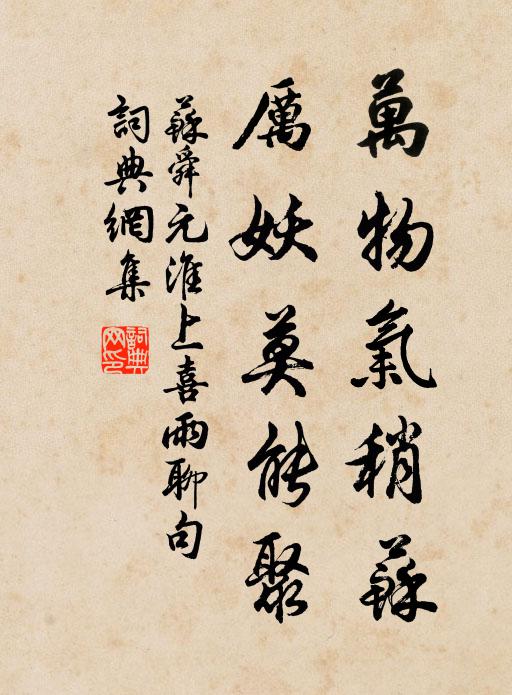 萬物氣稍蘇
厲妖莫能聚
蘇舜元淮上喜雨聊句
詞典網集
詞典
网印